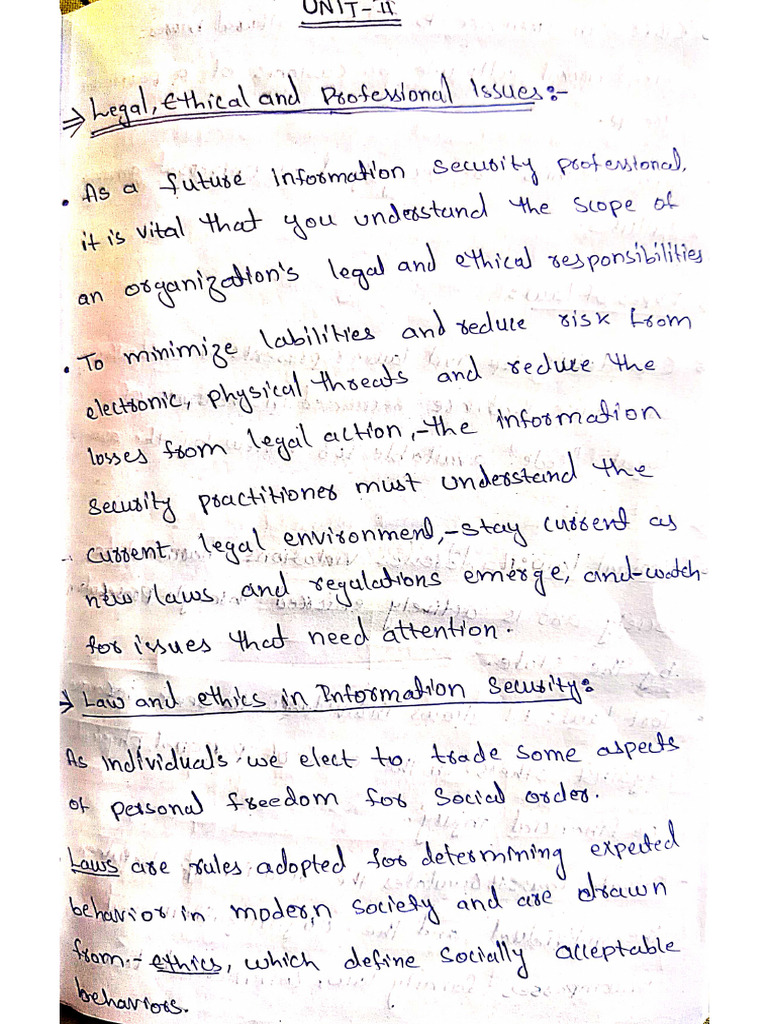 UNIT-II
⇒ Legal, Ethical and Professional Issues:-
• As a future information security professional,
it is vital that you understand the scope of
an organization's legal and ethical responsibilities
• To minimize labilities and reduce risk from
electronic, physical threats and reduce the
losses from legal action, the information
security practitioner must understand the
current legal environment, stay current as
new laws and regulations emerge, and watch
for issues that need attention.
→ Law and ethics in Information Security:
As individual's we elect to trade some aspects
of personal freedom for social order.
Laws are rules adopted for determining expected
behavior in modern society and are drawn
from:- ethics, which define socially acceptable
behaviors.